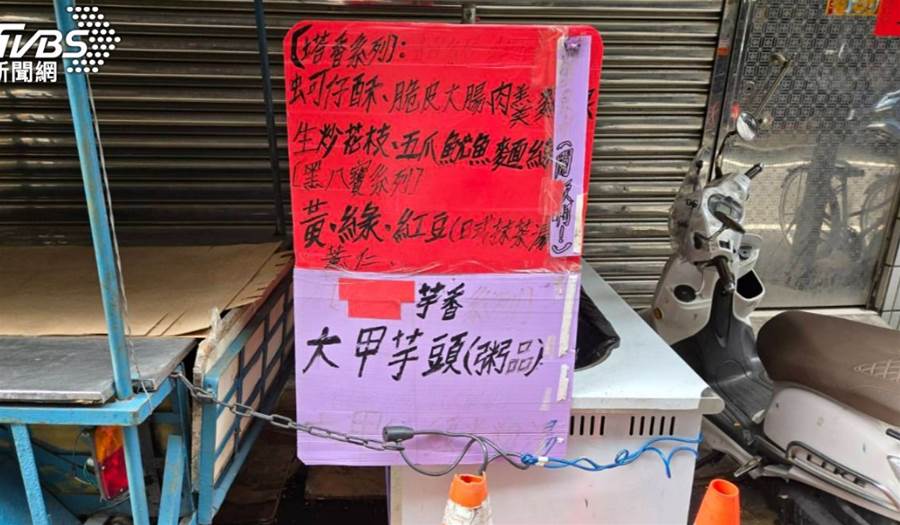 TVBS
新聞網
【塔香系列】:
虫可仔酥、脆皮大腸肉羹
生炒花枝、五爪魷魚麵線
[黑八寶系列]
黃、綠、紅豆(日式抹茶湯
薏仁、
芋香
大甲芋頭(粥品)